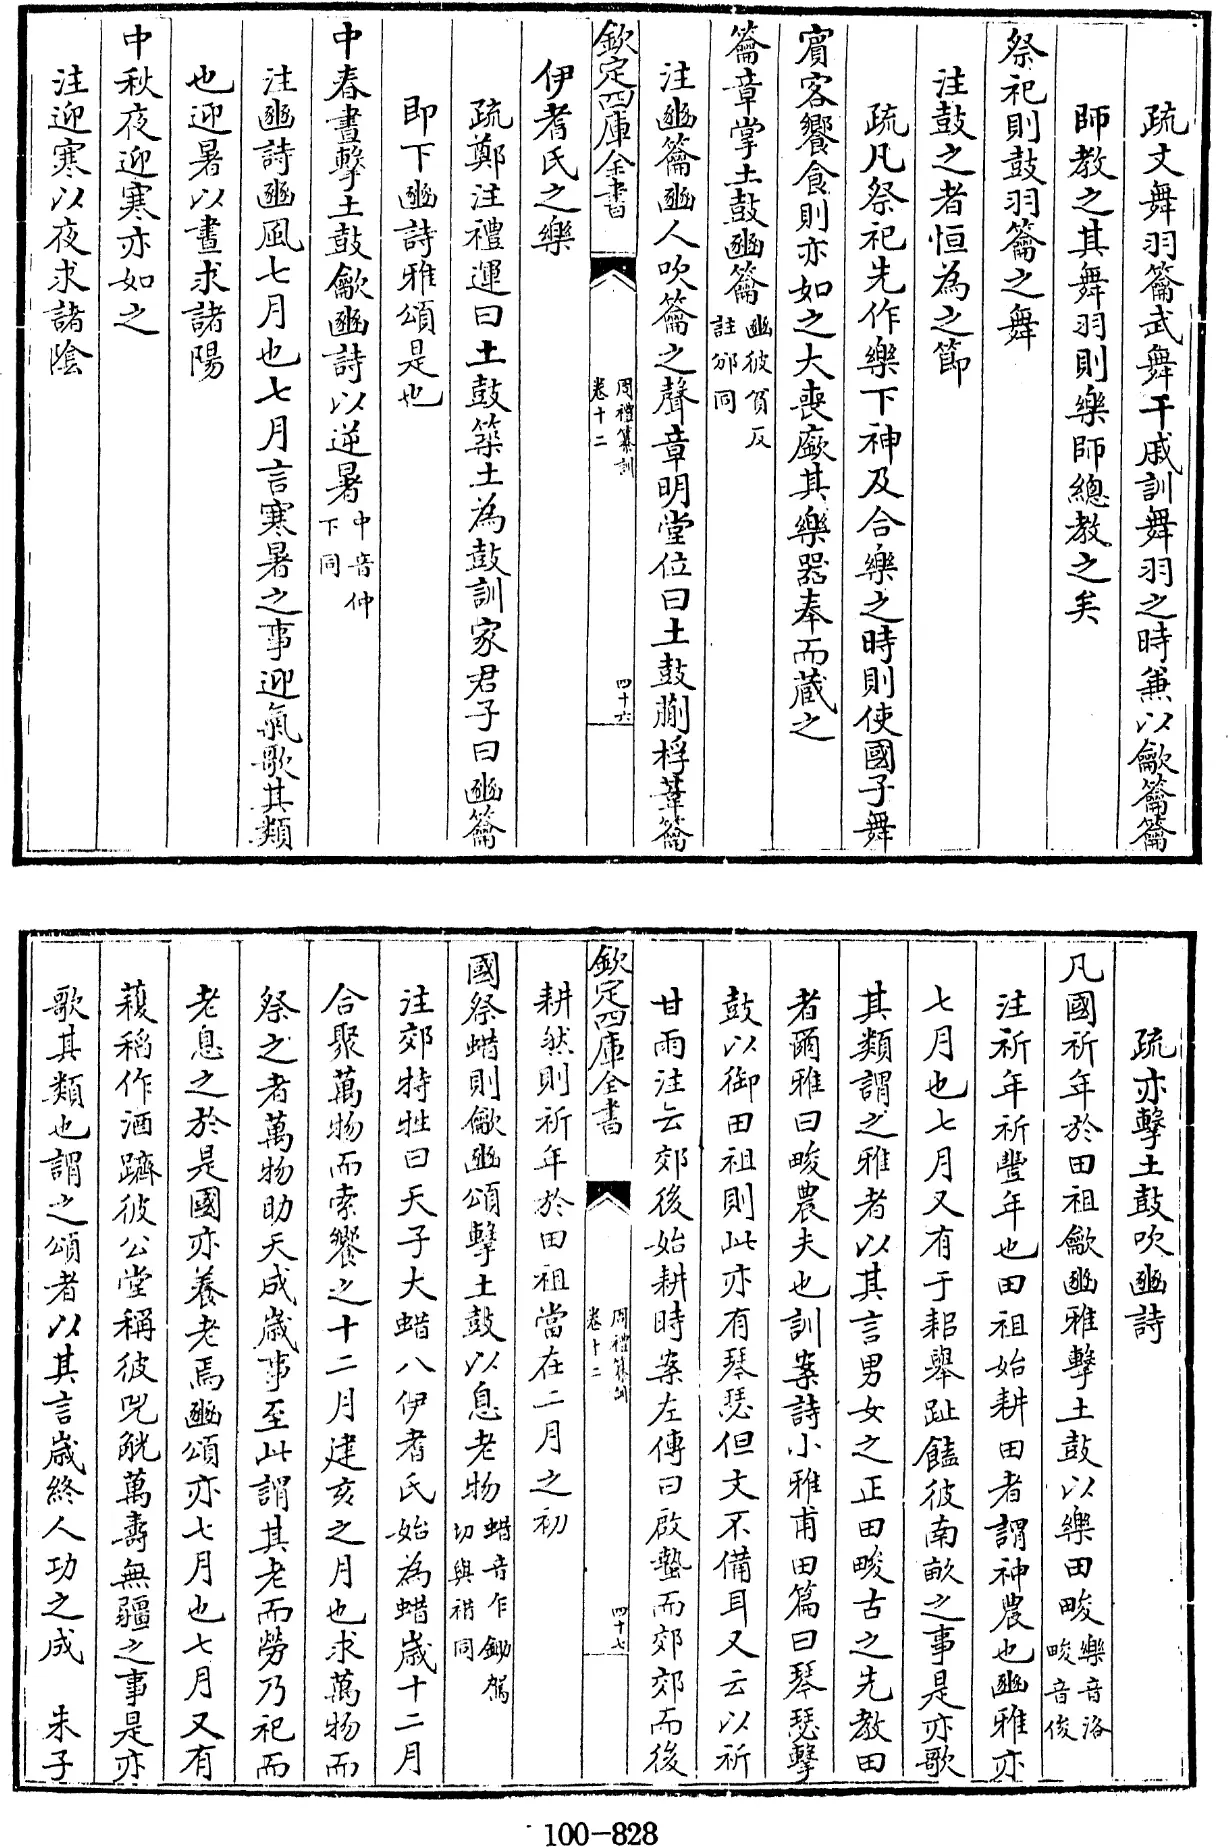 疏文舞羽籥武舞干戚訓舞羽之時兼以龡籥籥
師教之其舞羽則樂師總教之矣
祭祀則鼓羽籥之舞
注鼓之者恒為之節
疏凡祭祀先作樂下神及合樂之時則使國子舞
賓客饗食則亦如之大喪廞其樂器奉而藏之
籥章掌土鼓豳籥豳彼貧反註邠同
注豳籥豳人吹籥之聲章明堂位曰土鼓蒯桴葦籥
欽定四庫全書
周禮纂訓
卷十二
四十六
伊耆氏之樂
疏鄭注禮運曰土鼓築土為鼓訓家君子曰豳籥
即下豳詩雅頌是也
中春晝擊土鼓龡豳詩以逆暑中音仲下同
注豳詩豳風七月也七月言寒暑之事迎氣歌其類
也迎暑以晝求諸陽
中秋夜迎寒亦如之
注迎寒以夜求諸陰
疏亦擊土鼓吹豳詩
凡國祈年於田祖龡豳雅擊土鼓以樂田畯樂音洛畯音俊
注祈年祈豐年也田祖始耕田者謂神農也豳雅亦
七月也七月又有于耜舉趾饁彼南畝之事是亦歌
其類謂之雅者以其言男女之正田畯古之先教田
者爾雅曰畯農夫也訓案詩小雅甫田篇曰琴瑟擊
鼓以御田祖則此亦有琴瑟但文不備耳又云以祈
甘雨注云郊後始耕時案左傳曰啟蟄而郊郊而後
欽定四庫全書
周禮纂訓
卷十二
四十七
耕然則祈年於田祖當在二月之初
國祭蜡則龡豳頌擊土鼓以息老物蜡音乍鋤駕切與䄍同
注郊特牲曰天子大蜡八伊耆氏始為蜡歲十二月
合聚萬物而索饗之十二月建亥之月也求萬物而
祭之者萬物助天成歲事至此謂其老而勞乃祀而
老息之於是國亦養老焉豳頌亦七月也七月又有
穫稻作酒躋彼公堂稱彼兕觥萬壽無疆之事是亦
歌其類也謂之頌者以其言歲終人功之成　朱子
100-828